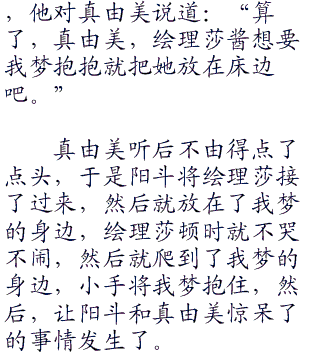 ，他对真由美说道：“算
了，真由美，绘理莎酱想要
我梦抱抱就把她放在床边
吧。”
真由美听后不由得点了
点头，于是阳斗将绘理莎接
了过来，然后就放在了我梦
的身边，绘理莎顿时就不哭
不闹，然后就爬到了我梦的
身边，小手将我梦抱住，然
后，让阳斗和真由美惊呆了
的事情发生了。